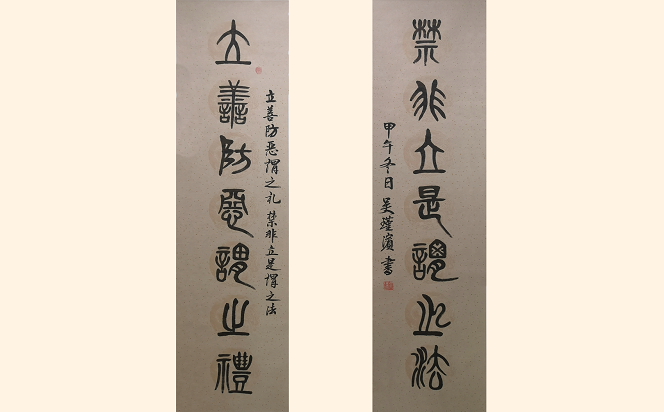 立善防惡謂之禮
立善防惡謂之礼 禁非立是謂之法
禁非立是謂之法
甲午冬日 吴瑾濱書